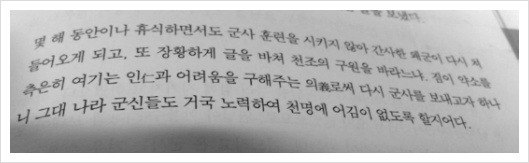 을 보냈다.
몇 해 동안이나 휴식하면서도 군사 훈련을 시키지 않아 간사한 왜군이 다시 쳐
들어오게 되고, 또 장황하게 글을 바쳐 천조의 구원을 바라느냐. 짐이 약소를
측은히 여기는 인仁과 어려움을 구해주는 의義로써 다시 군사를 보내고자 하나
니 그대 나라 군신들도 거국 노력하여 천명에 어김이 없도록 할지어다.